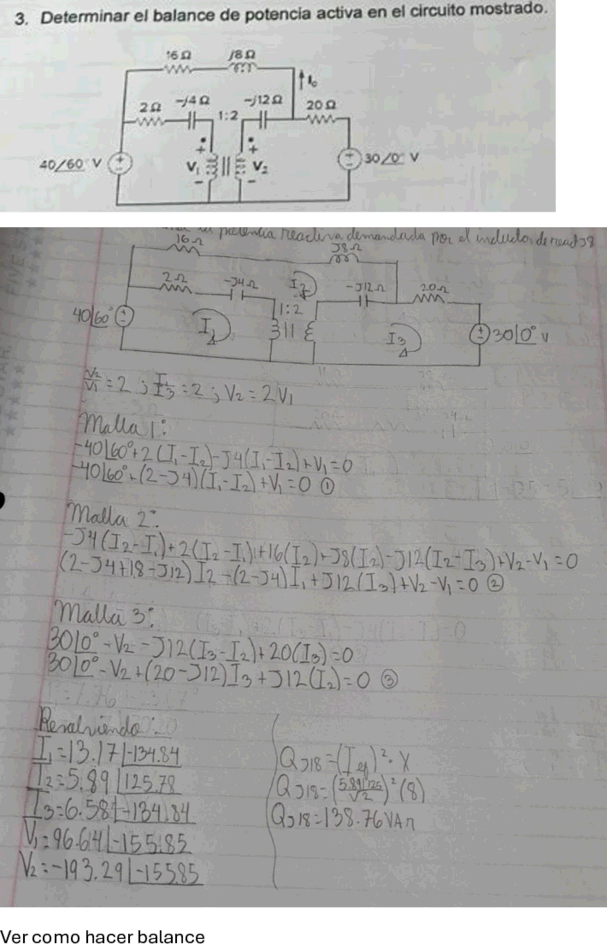 3. Determinar el balance de potencia activa en el circuito mostrado.
16 Ω
j8 Ω
I₀
2 Ω
-j4 Ω
1:2
-j12 Ω
20 Ω
40/60° V
V₁
V₂
30/0° V
potencia reactiva demandada por el inductor de react J8
16 Ω
J8 Ω
2 Ω
-J4 Ω
I₂
-J12 Ω
20 Ω
40|60°
I₁
1:2
I₃
30|0° V
V₂/V₁ = 2 ; I₁/I₃ = 2 ; V₂ = 2V₁
Malla 1:
-40|60° + 2(I₁-I₂) - J4(I₁-I₂) + V₁ = 0
-40|60° + (2-J4)(I₁-I₂) + V₁ = 0 ①
Malla 2:
-J4(I₂-I₁) + 2(I₂-I₁) + 16(I₂) + J8(I₂) - J12(I₂-I₃) + V₂ - V₁ = 0
(2-J4+18-J12) I₂ - (2-J4) I₁ + J12(I₃) + V₂ - V₁ = 0 ②
Malla 3:
30|0° - V₂ - J12(I₃-I₂) + 20(I₃) = 0
30|0° - V₂ + (20-J12) I₃ + J12(I₂) = 0 ③
Resolviendo:
I₁ = 13.17 |-134.84
I₂ = 5.89 |125.78
I₃ = 6.58 |-134.84
V₁ = 96.64 |-155.85
V₂ = -193.29 |-155.85
QJ18 = (Ief)² · X
QJ18 = (5.89|125/√2)² (8)
QJ18 = 138.76 VAr
Ver como hacer balance